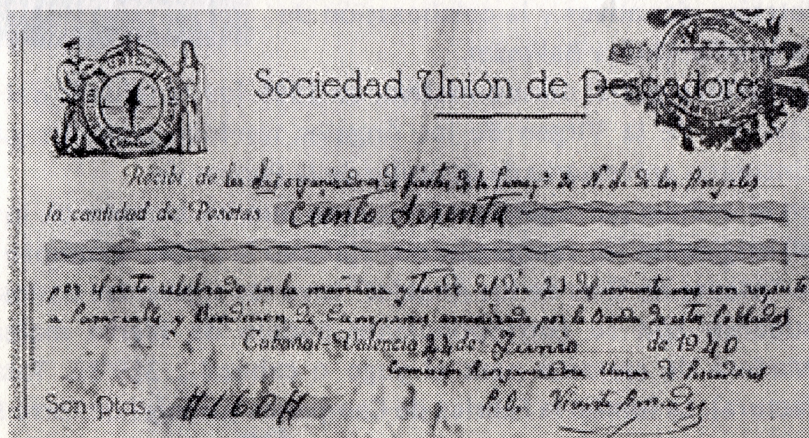 Sociedad Unión de Pescadores
Recibí de los organizadores de fiestas de la Parroqª de N. S. de los Angeles
la cantidad de Pesetas Ciento Sesenta
por el acto celebrado en la mañana y tarde del dia 23 del corriente mes con respecto
a Pasacalle y Bendicion de Campanas amenizada por la Banda de estos Poblados
Cabañal-Valencia 24 de Junio de 1940
Comisión Reorganizadora Union de Pescadores
Son Ptas. #160#
P.O. Vicente